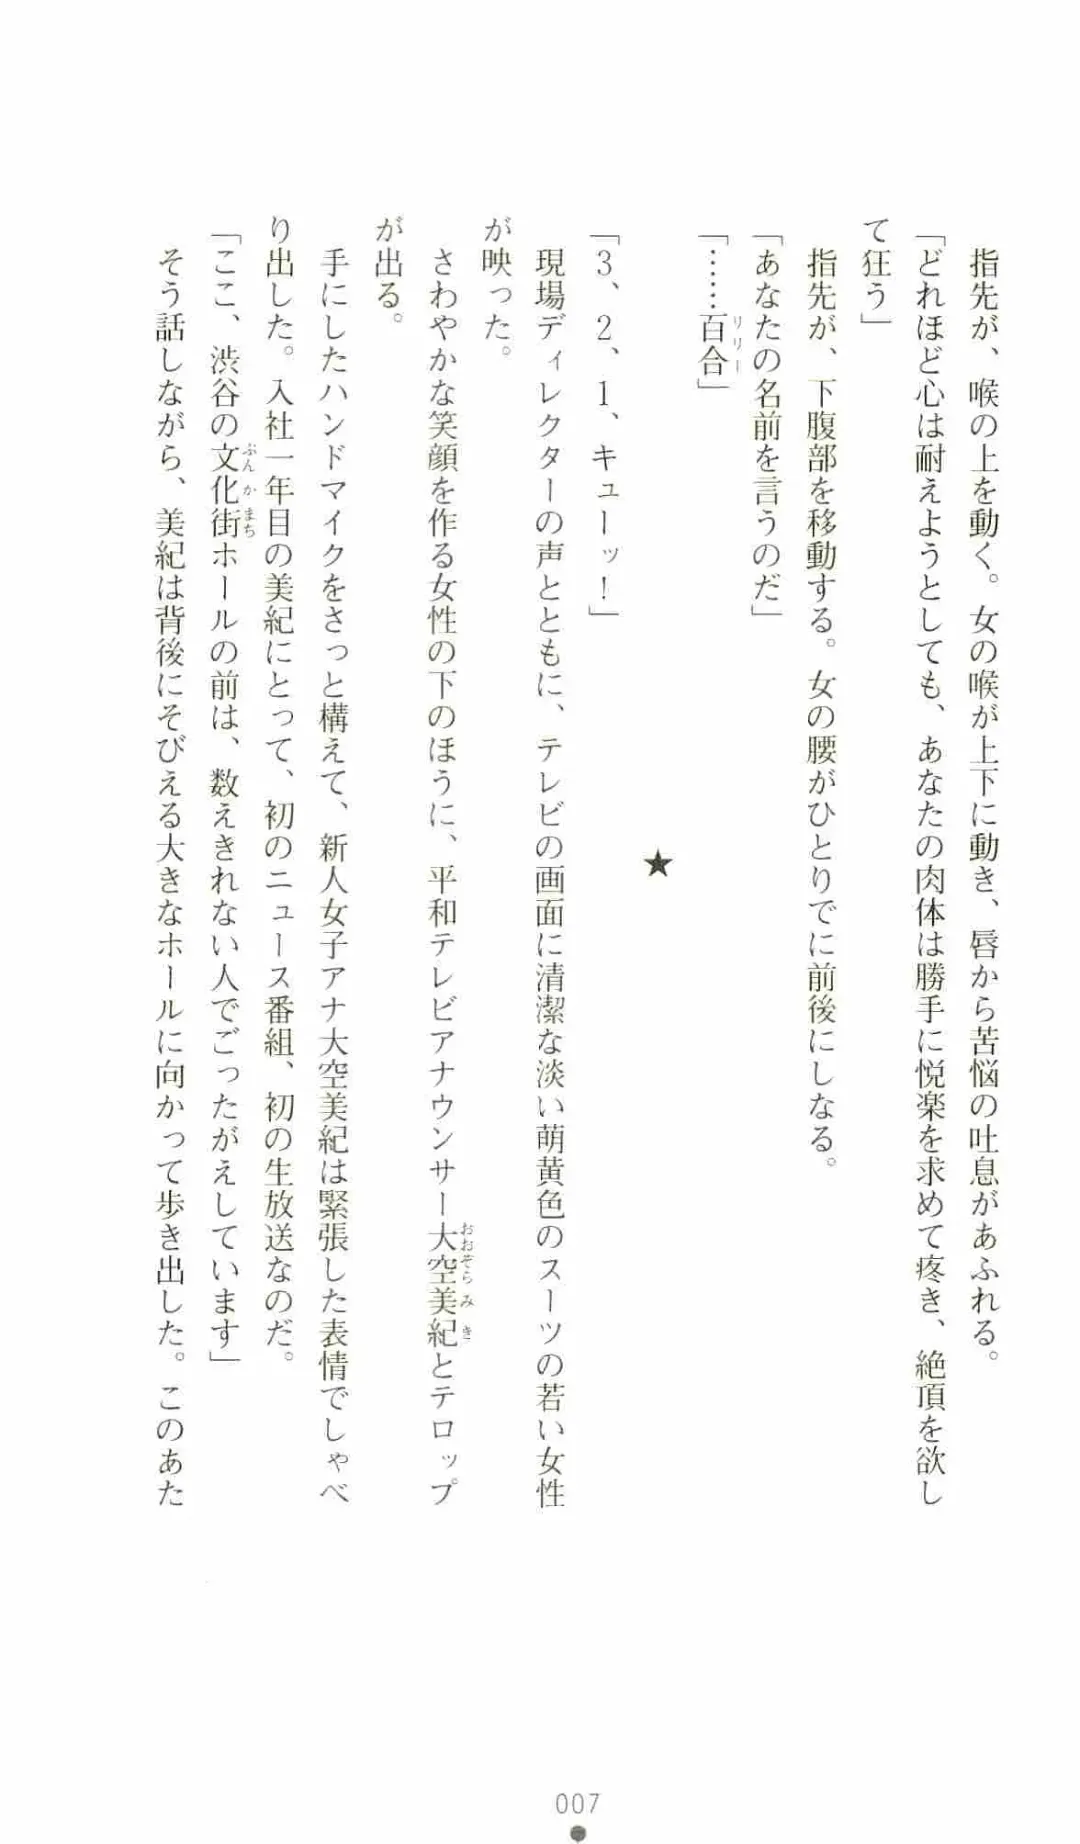 指先が、喉の上を動く。女の喉が上下に動き、唇から苦悩の吐息があふれる。
「どれほど心は耐えようとしても、あなたの肉体は勝手に悦楽を求めて疼き、絶頂を欲し
て狂う」
指先が、下腹部を移動する。女の腰がひとりでに前後にしなる。
「あなたの名前を言うのだ」
「……百合」
リリー
★
「3、2、1、キューッ！」
現場ディレクターの声とともに、テレビの画面に清潔な淡い萌黄色のスーツの若い女性
が映った。
さわやかな笑顔を作る女性の下のほうに、平和テレビアナウンサー大空美紀とテロップ
おおぞらみき
が出る。
手にしたハンドマイクをさっと構えて、新人女子アナ大空美紀は緊張した表情でしゃべ
り出した。入社一年目の美紀にとって、初のニュース番組、初の生放送なのだ。
「ここ、渋谷の文化街ホールの前は、数えきれない人でごったがえしています」
ぶんかまち
そう話しながら、美紀は背後にそびえる大きなホールに向かって歩き出した。このあた
007